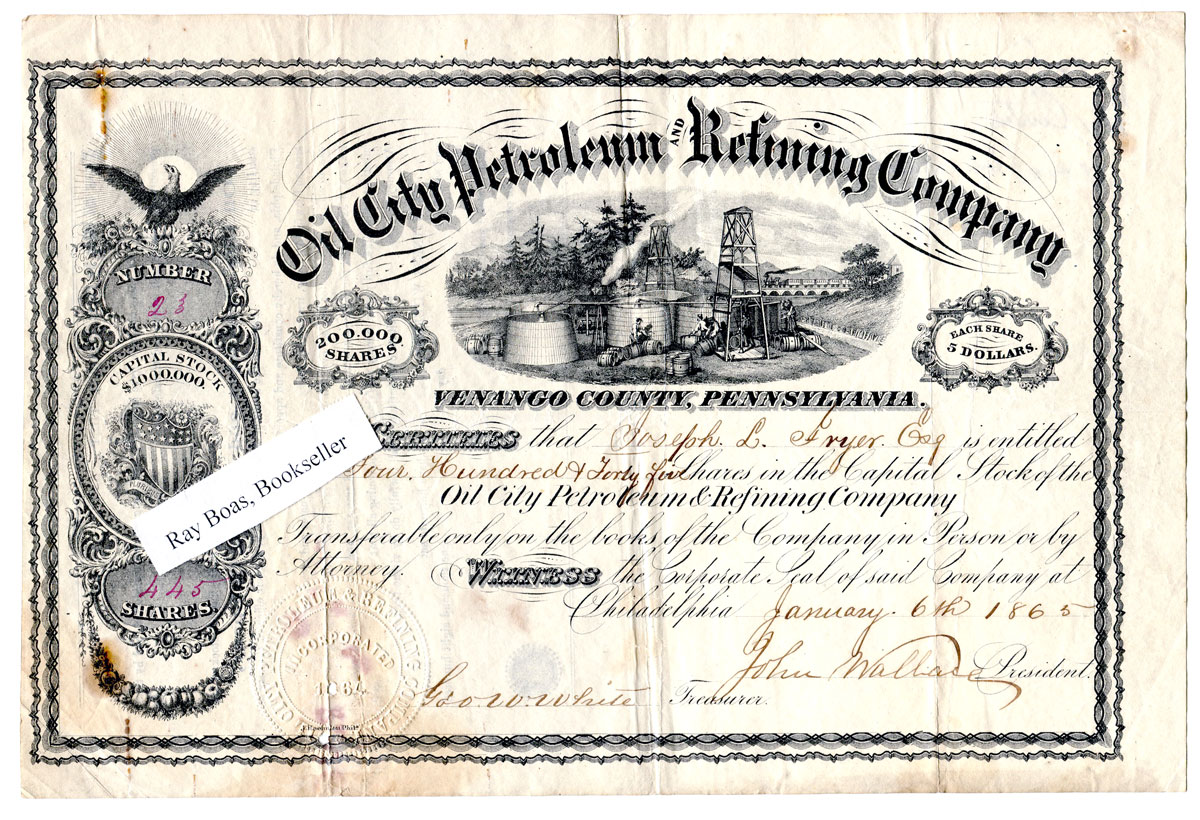 Oil City Petroleum AND Refining Company
NUMBER
23
200.000
SHARES
EACH SHARE
5 DOLLARS.
CAPITAL STOCK
$1000.000.
VENANGO COUNTY, PENNSYLVANIA.
CERTIFIES that Joseph L. Fryer Esq is entitled
Four Hundred & Forty five Shares in the Capital Stock of the
Oil City Petroleum & Refining Company
Transferable only on the books of the Company in Person or by
Attorney. WITNESS the Corporate Seal of said Company at
Philadelphia January 6th 1865
Ray Boas, Bookseller
445
SHARES.
John Wallace President.
Geo W. White Treasurer.
CITY PETROLEUM & REFINING COMPA
INCORPORATED
1864